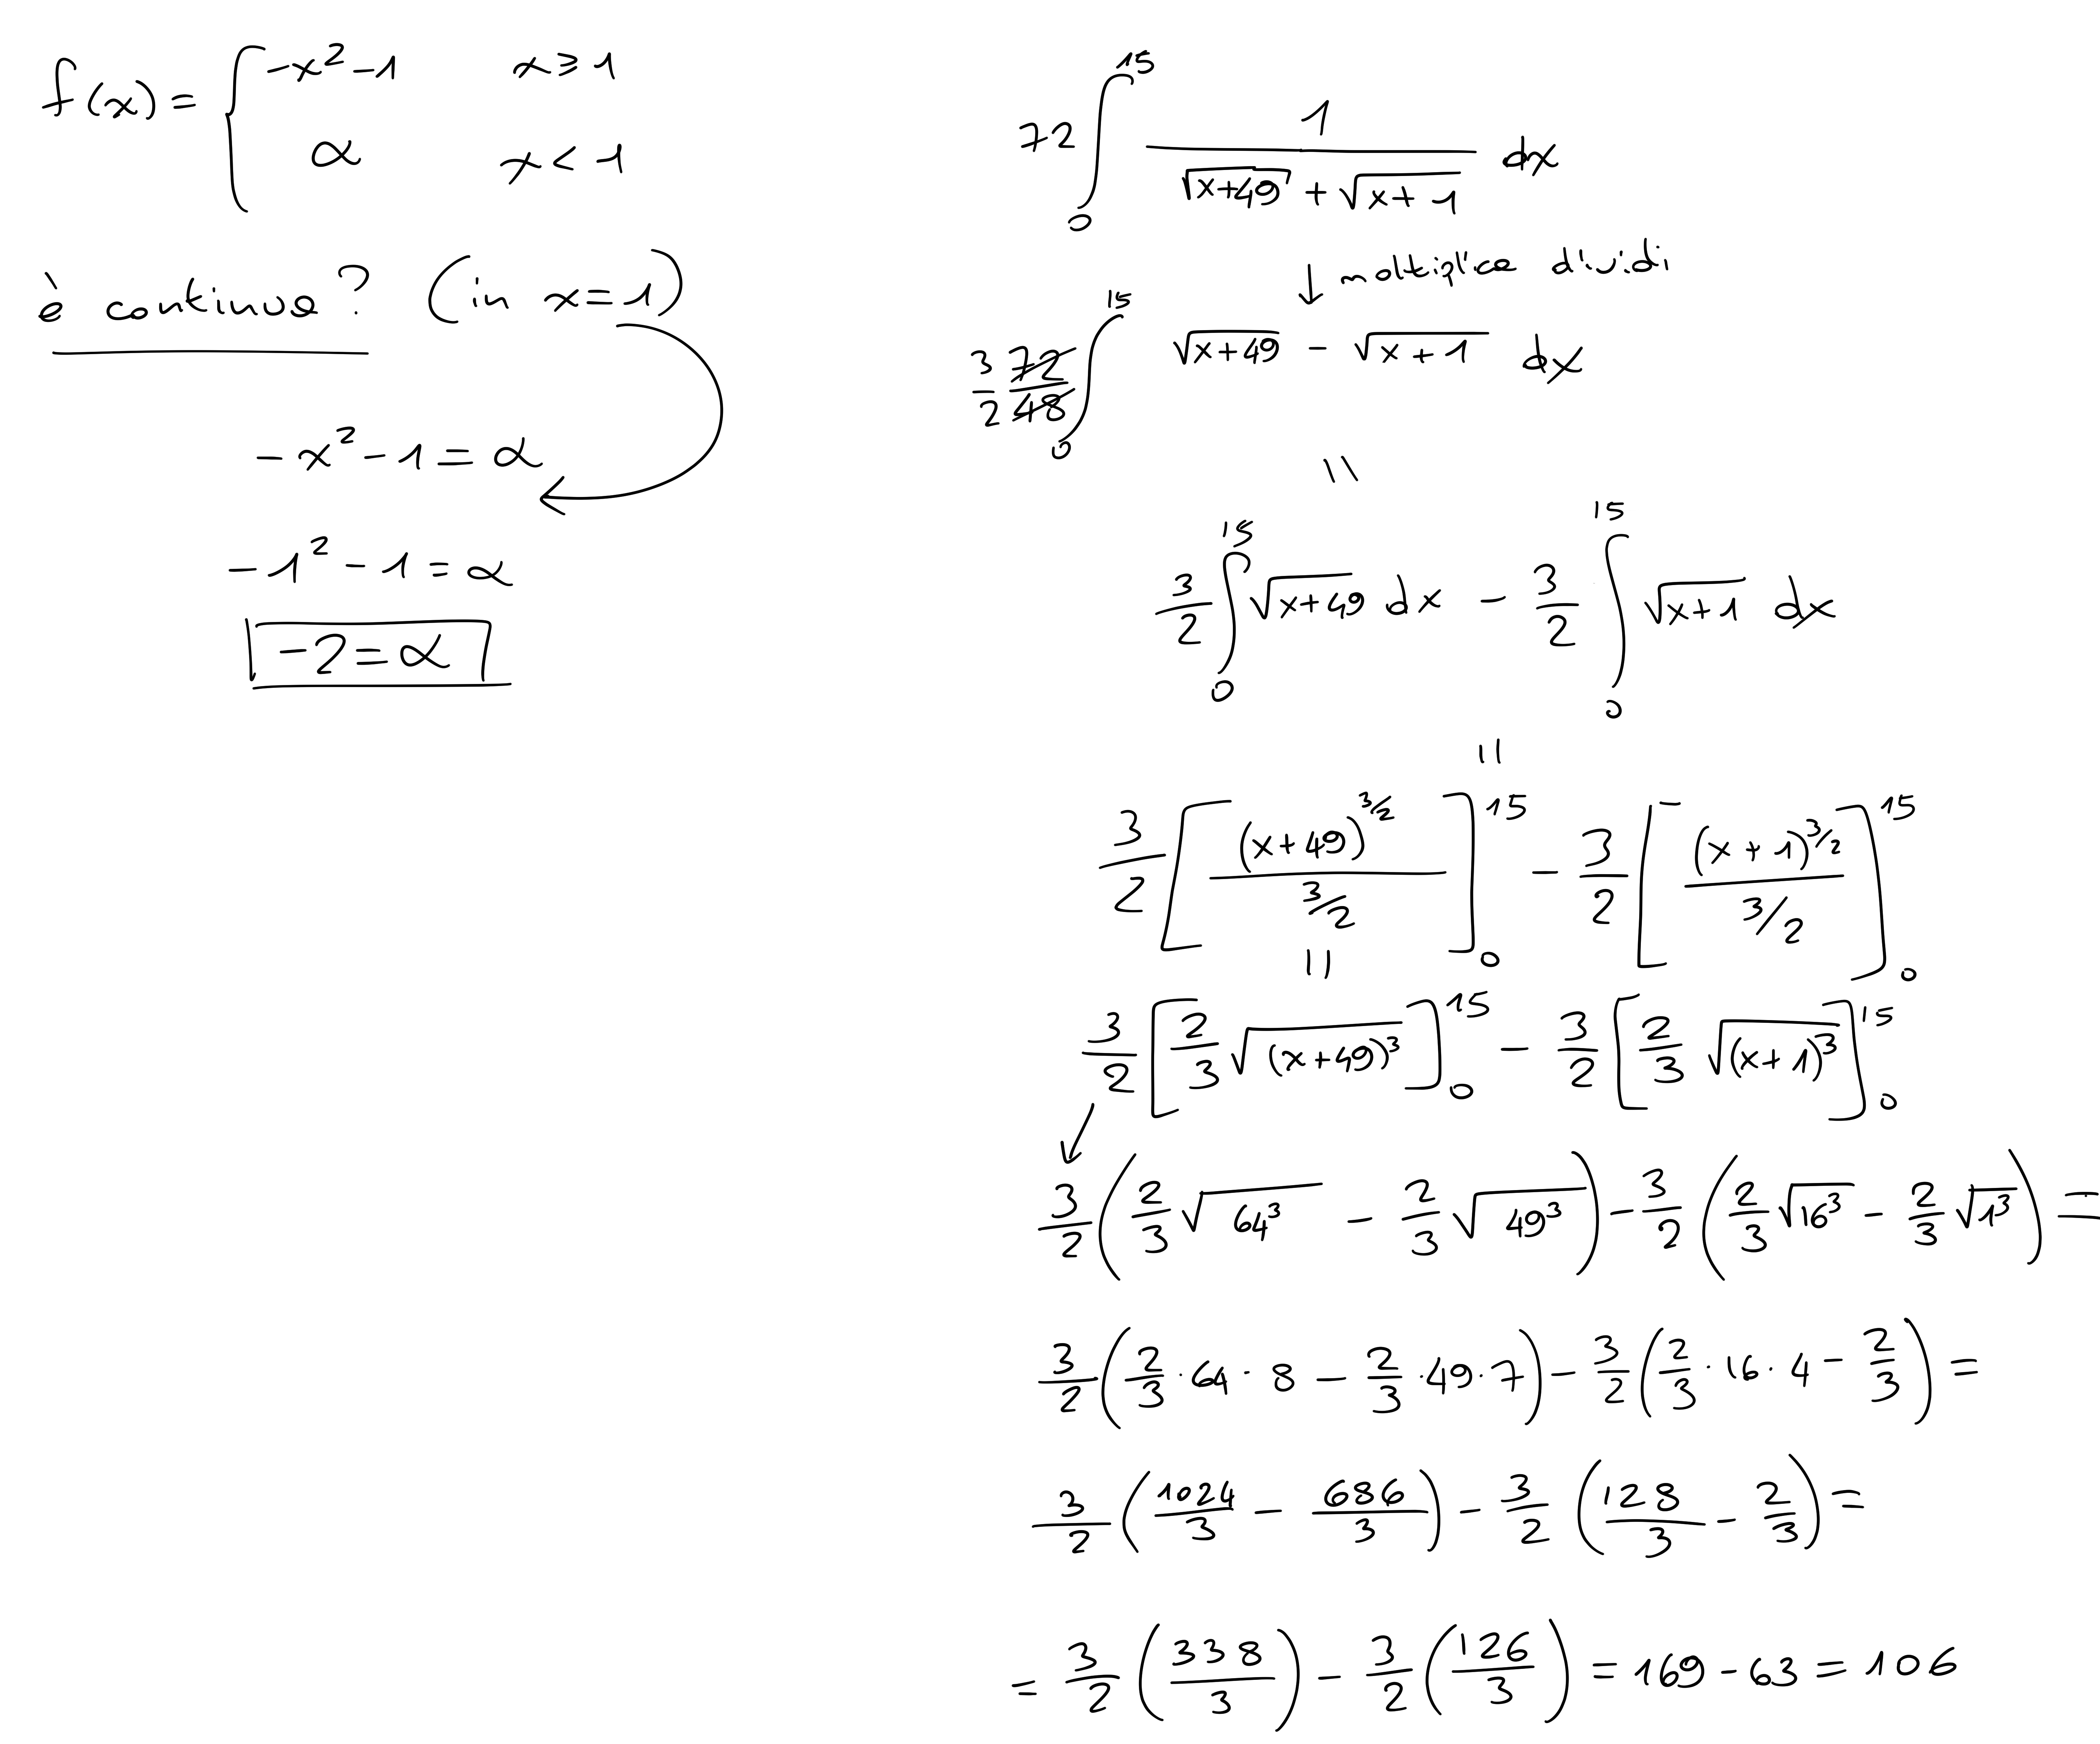 f(x) = { -x² - 1    x ≥ 1
α    x < 1
è continua? (in x = 1)
-x² - 1 = α
-1² - 1 = α
-2 = α
72 ∫₀¹⁵ 1 / (√(x+49) + √(x+1)) dx
↓ moltiplica dividi
3/2 72/48 ∫₀¹⁵ √(x+49) - √(x+1) dx
=
3/2 ∫₀¹⁵ √(x+49) dx - 3/2 ∫₀¹⁵ √(x+1) dx
=
3/2 [ (x+49)^(3/2) / (3/2) ]₀¹⁵ - 3/2 [ (x+1)^(3/2) / (3/2) ]₀¹⁵
=
3/2 [ 2/3 √((x+49)³) ]₀¹⁵ - 3/2 [ 2/3 √((x+1)³) ]₀¹⁵
3/2 ( 2/3 √(64³) - 2/3 √(49³) ) - 3/2 ( 2/3 √(16³) - 2/3 √(1³) ) =
3/2 ( 2/3 · 64 · 8 - 2/3 · 49 · 7 ) - 3/2 ( 2/3 · 16 · 4 - 2/3 ) =
3/2 ( 1024/3 - 686/3 ) - 3/2 ( 128/3 - 2/3 ) =
= 3/2 ( 338/3 ) - 3/2 ( 126/3 ) = 169 - 63 = 106